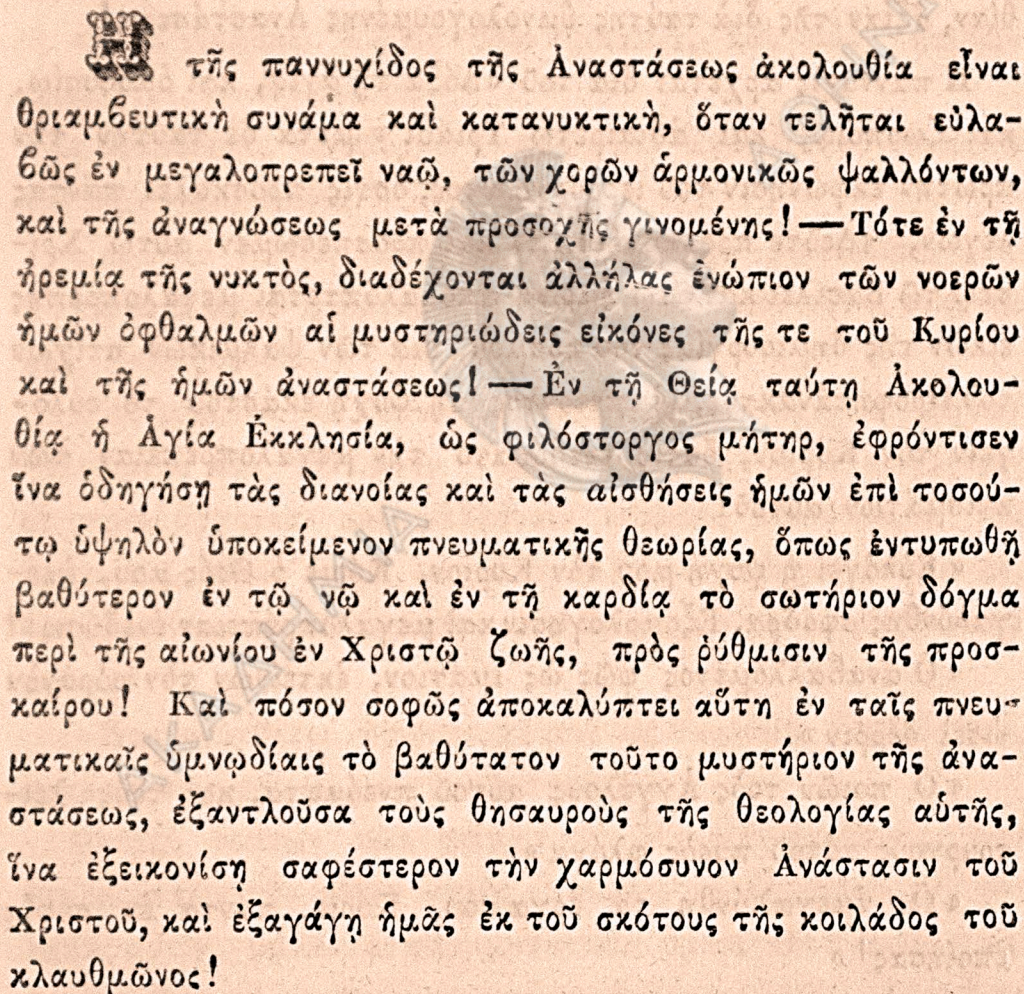 Η τῆς παννυχίδος τῆς Ἀναστάσεως ἀκολουθία εἶναι
θριαμβευτικὴ συνάμα καὶ κατανυκτικὴ, ὅταν τελῆται εὐλα-
βῶς ἐν μεγαλοπρεπεῖ ναῷ, τῶν χορῶν ἁρμονικῶς ψαλλόντων,
καὶ τῆς ἀναγνώσεως μετὰ προσοχῆς γινομένης! — Τότε ἐν τῇ
ἠρεμίᾳ τῆς νυκτὸς, διαδέχονται ἀλλήλας ἐνώπιον τῶν νοερῶν
ἡμῶν ὀφθαλμῶν αἱ μυστηριώδεις εἰκόνες τῆς τε τοῦ Κυρίου
καὶ τῆς ἡμῶν ἀναστάσεως! — Ἐν τῇ Θείᾳ ταύτῃ Ἀκολου-
θίᾳ ἡ Ἁγία Ἐκκλησία, ὡς φιλόστοργος μήτηρ, ἐφρόντισεν
ἵνα ὁδηγήσῃ τὰς διανοίας καὶ τὰς αἰσθήσεις ἡμῶν ἐπὶ τοσού-
τῳ ὑψηλὸν ὑποκείμενον πνευματικῆς θεωρίας, ὅπως ἐντυπωθῇ
βαθύτερον ἐν τῷ νῷ καὶ ἐν τῇ καρδίᾳ τὸ σωτήριον δόγμα
περὶ τῆς αἰωνίου ἐν Χριστῷ ζωῆς, πρὸς ῥύθμισιν τῆς προσ-
καίρου! Καὶ πόσον σοφῶς ἀποκαλύπτει αὕτη ἐν ταῖς πνευ-
ματικαῖς ὑμνῳδίαις τὸ βαθύτατον τοῦτο μυστήριον τῆς ἀνα-
στάσεως, ἐξαντλοῦσα τοὺς θησαυροὺς τῆς θεολογίας αὑτῆς,
ἵνα ἐξεικονίσῃ σαφέστερον τὴν χαρμόσυνον Ἀνάστασιν τοῦ
Χριστοῦ, καὶ ἐξαγάγῃ ἡμᾶς ἐκ τοῦ σκότους τῆς κοιλάδος τοῦ
κλαυθμῶνος!